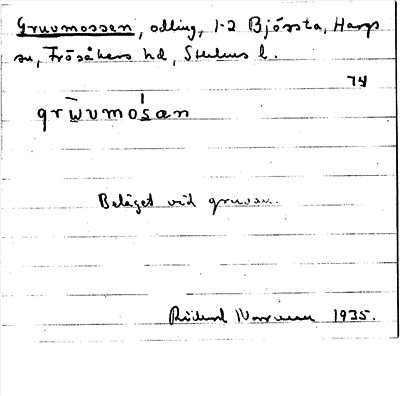 Gruvmossen, odling, 1-2 Björsta, Hargs
sn, Frösåkers hd, Sthlms l.
74
grw̄vmos̲an
Beläget vid gruvan.
Rickard Norrman 1935.